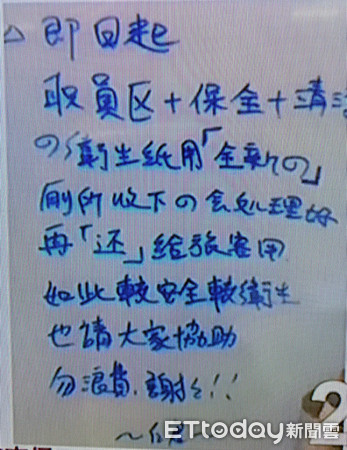 △即日起
职員区+保全+清潔
の衛生紙用「全新の」
廁所收下の会処理好
再「还」給旅客用
如此較安全較衛生
也請大家協助
勿浪費,謝々!!
ETtoday新聞雲
2